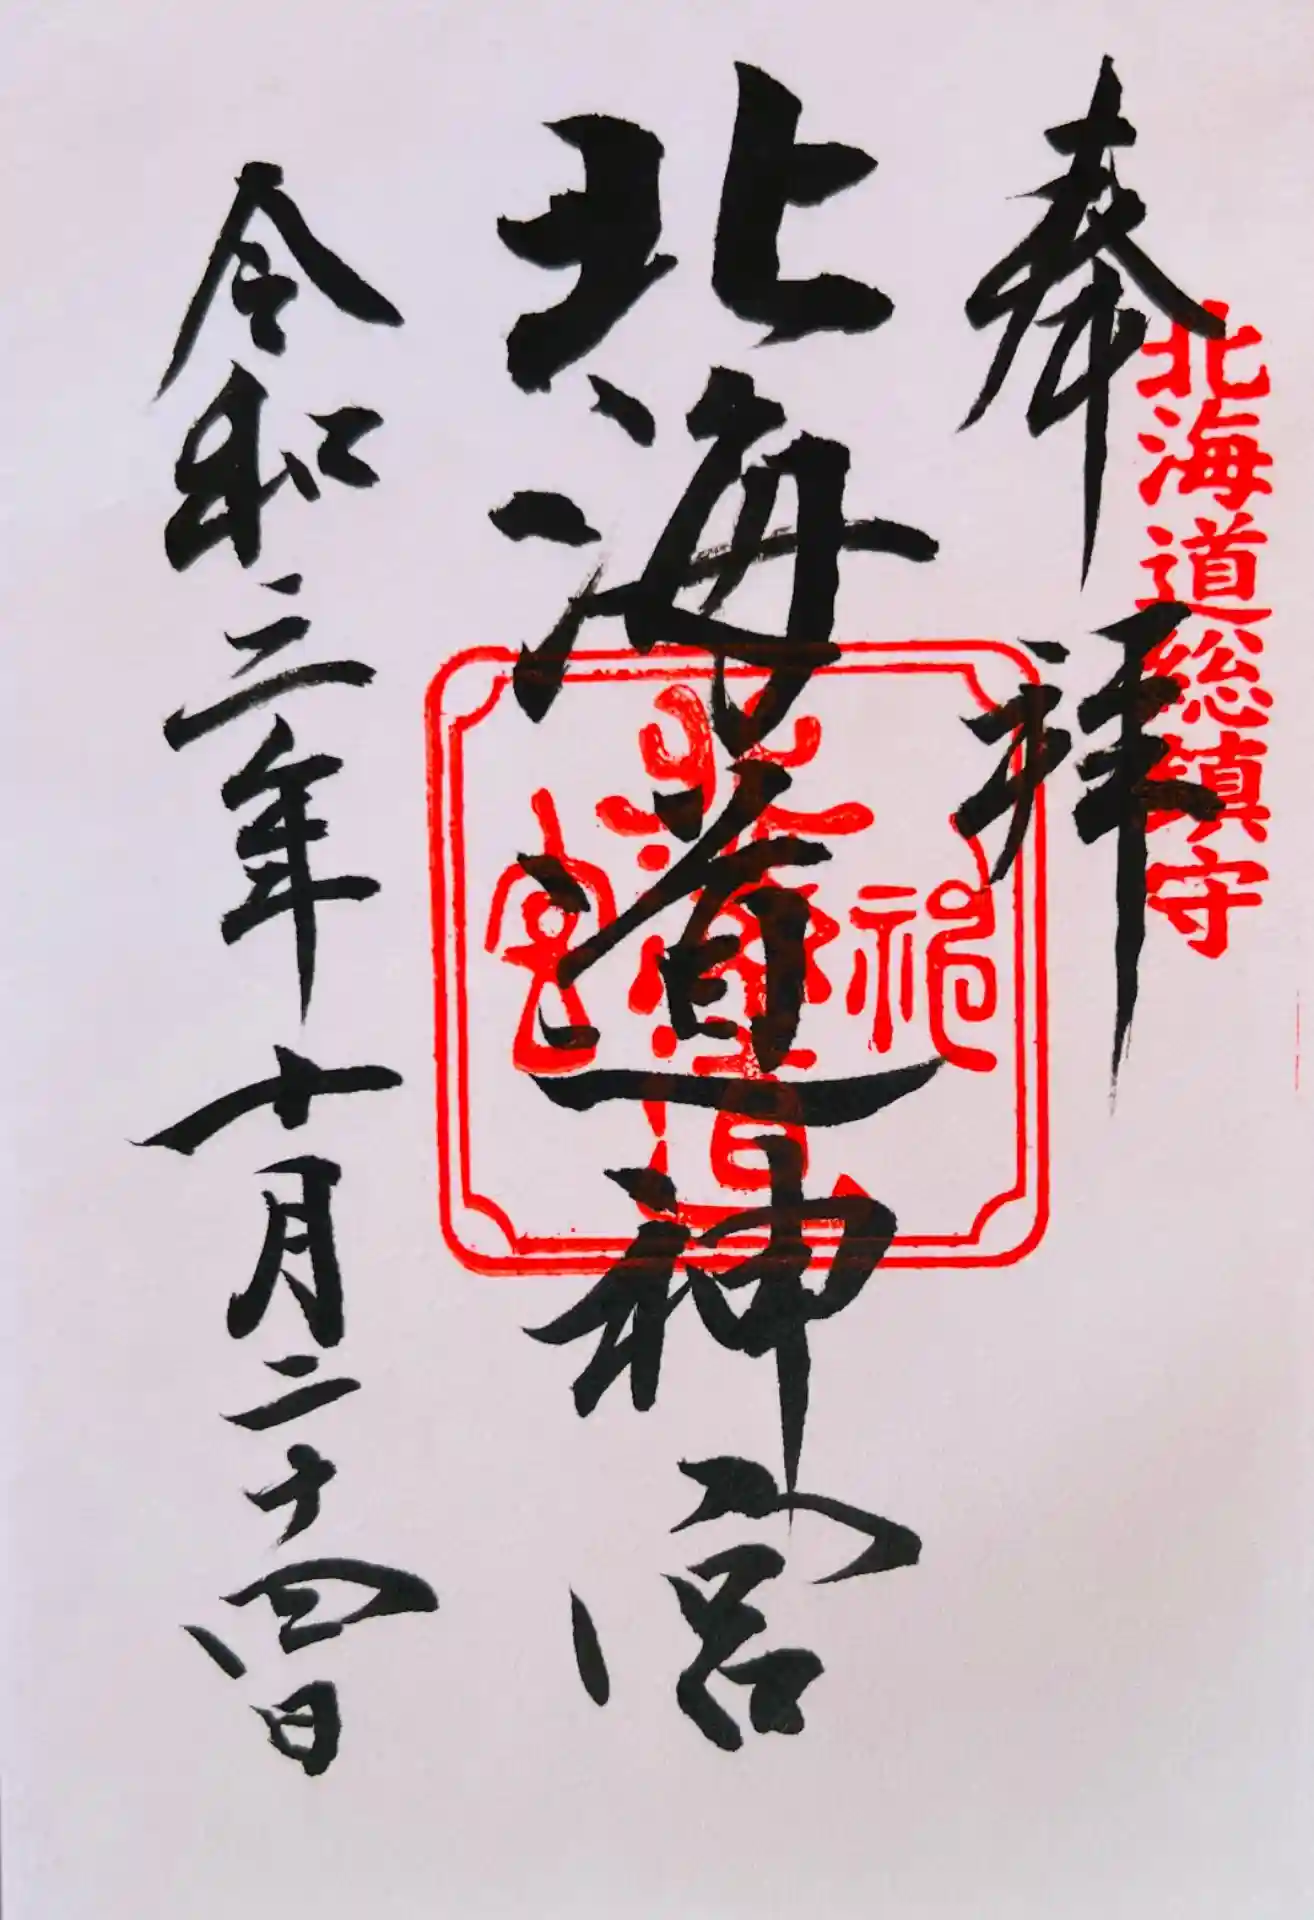 北海道総鎮守
奉拝
北海道神宮
北海道神宮
令和三年十月二十四日